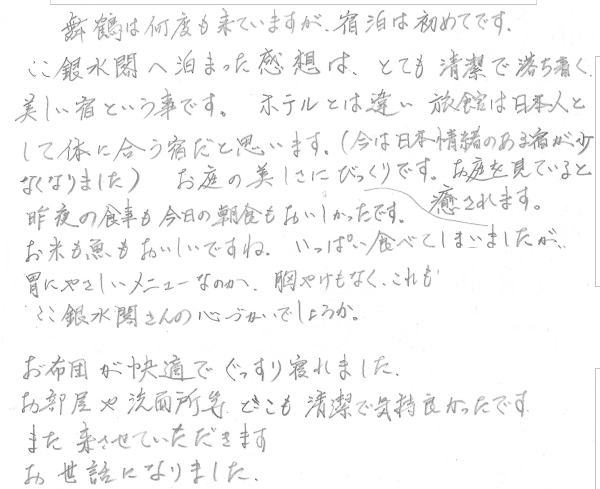 舞鶴は何度も来ていますが、宿泊は初めてです。
ここ銀水閣へ泊まった感想は、とても清潔で落ち着く
美しい宿という事です。 ホテルとは違い 旅館は日本人と
して体に合う宿だと思います。(今は日本情緒のある宿が少
なくなりました) お庭の美しさにびっくりです。お庭を見ていると
癒されます。
昨夜の食事も今日の朝食もおいしかったです。
お米も魚もおいしいですね。いっぱい食べてしまいましたが、
胃にやさしいメニューなのか、胸やけもなく、これも
ここ銀水閣さんの心づかいでしょうか。
お布団が快適でぐっすり寝れました。
お部屋や洗面所等、どこも清潔で気持良かったです
また来させていただきます
お世話になりました。